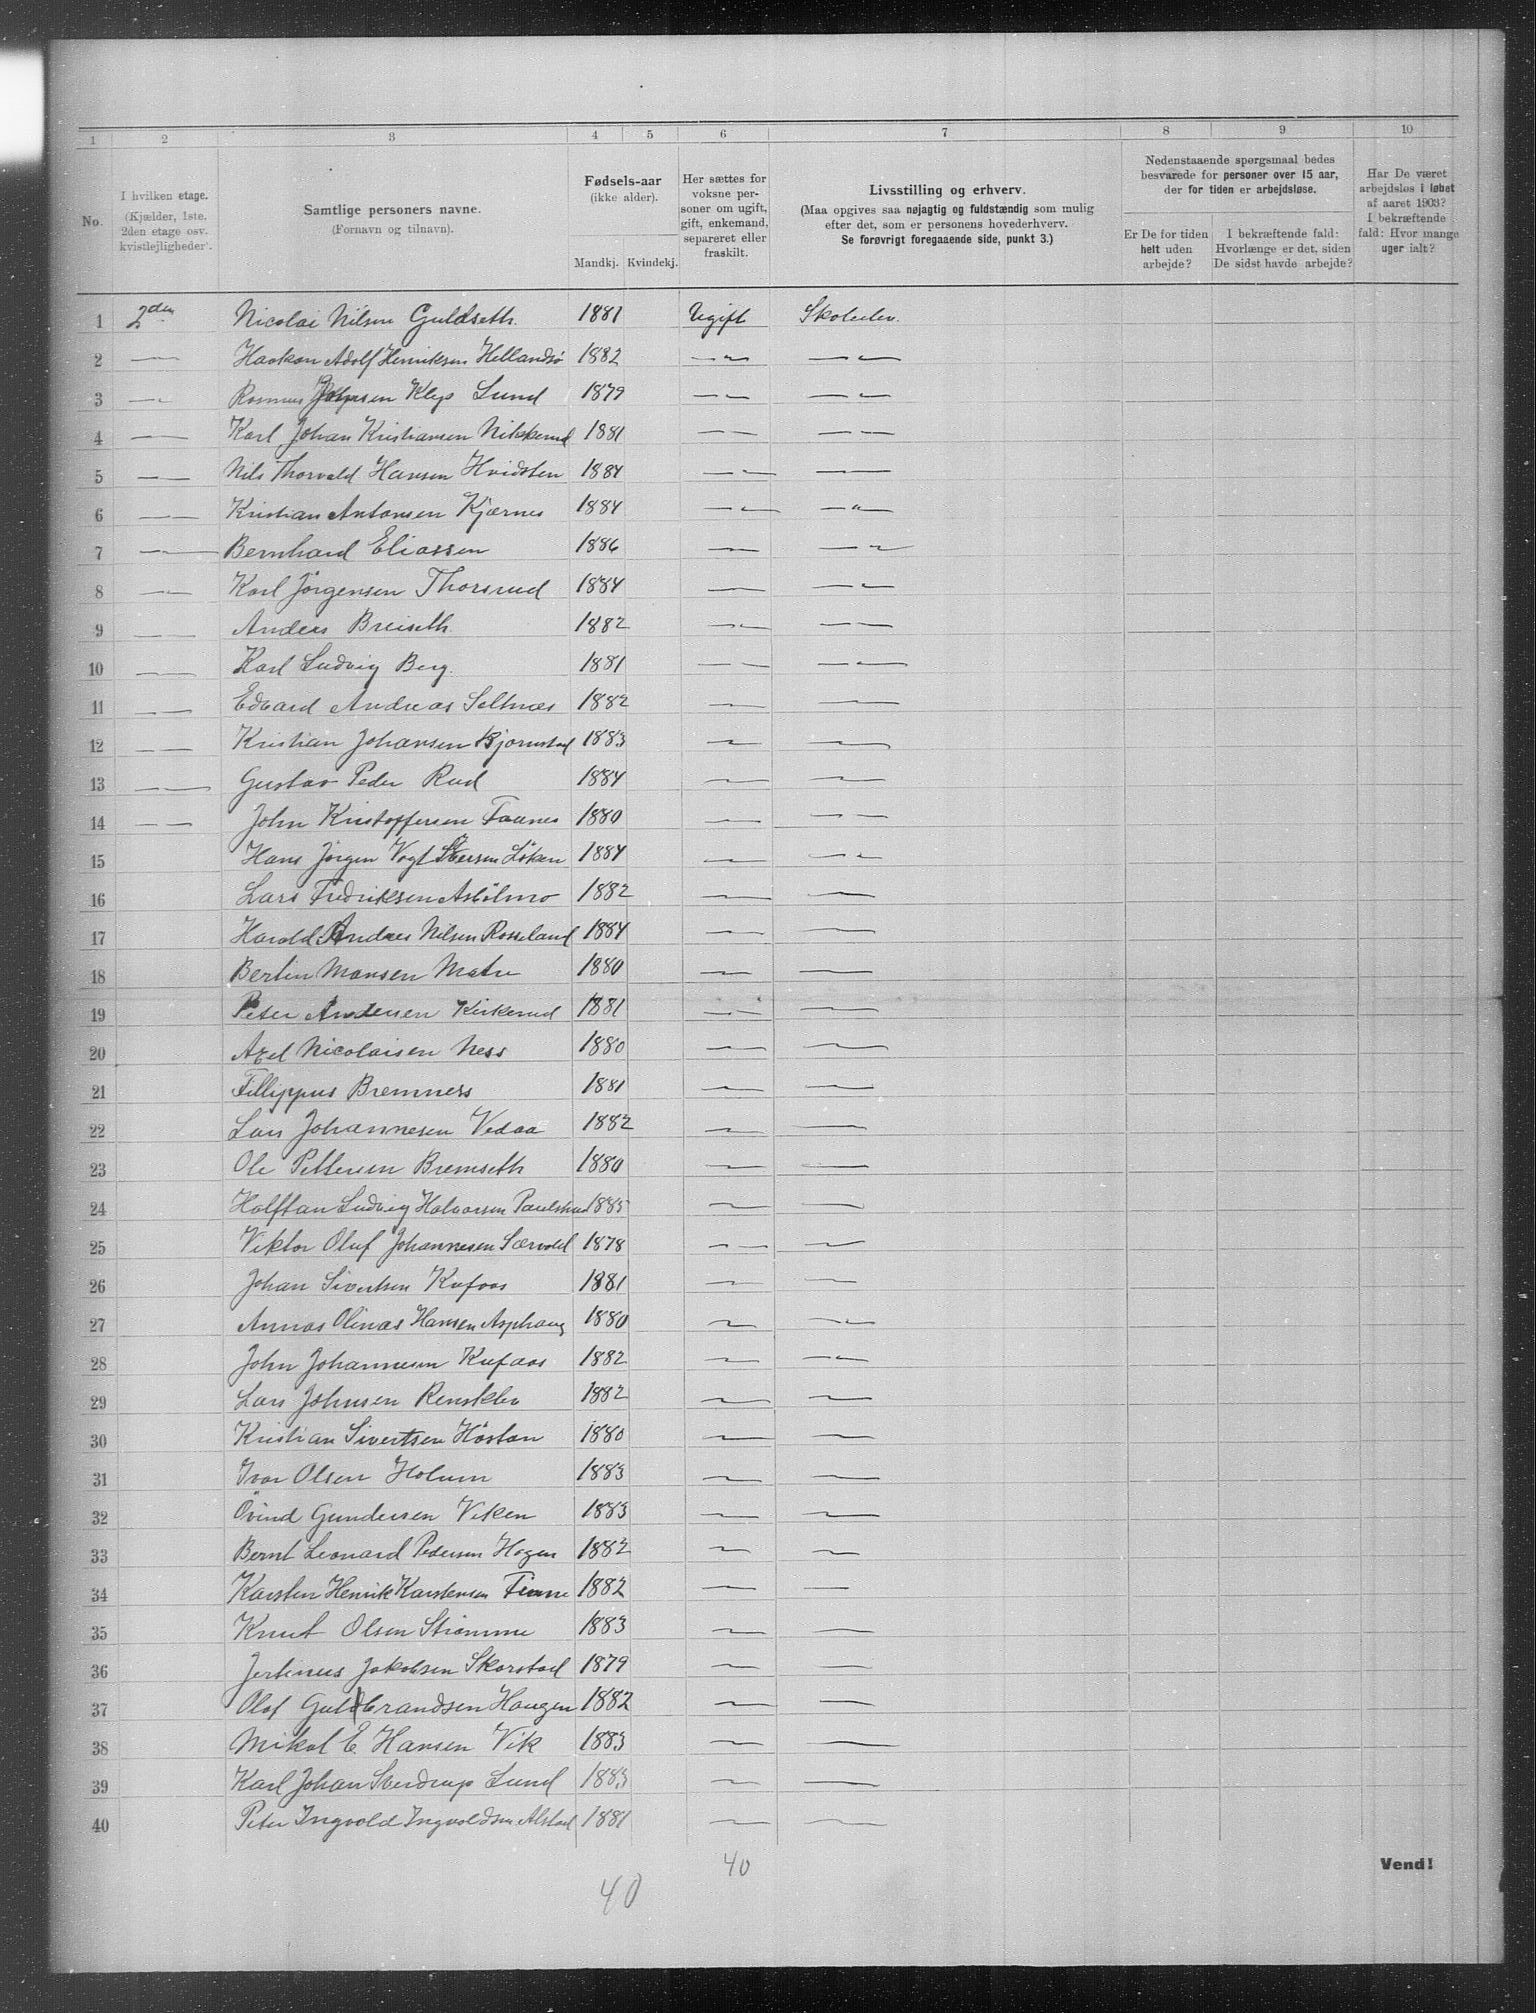 1 2 3 4 5 6 7 8 9 10
No.
I hvilken etage.
(Kjælder, 1ste.
2den etage osv.
kvistlejligheder).
Samtlige personers navne.
(Fornavn og tilnavn).
Fødsels-aar
(ikke alder).
Mandkj. Kvindekj.
Her sættes for
voksne per-
soner om ugift,
gift, enkemand,
separeret eller
fraskilt.
Livsstilling og erhverv.
(Maa opgives saa nøjagtig og fuldstændig som mulig
efter det, som er personens hovederhverv.
Se forøvrigt foregaaende side, punkt 3.)
Nedenstaaende spørgsmaal bedes
besvarede for personer over 15 aar,
der for tiden er arbejdsløse.
Er De for tiden
helt uden
arbejde?
I bekræftende fald:
Hvorlænge er det, siden
De sidst havde arbejde?
Har De været
arbejdsløs i løbet
af aaret 1903?
I bekræftende
fald: Hvor mange
uger ialt?
1 2den Nicolai Nilsen Guldseth. 1881 Ugift Skoleelev.
2 Haakon Adolf Henriksen Hellandsø 1882
3 Rasmus Klep Lund 1879
4 Karl Johan Kristiansen Nikkerud 1881
5 Nils Thorvald Hansen Hvidsten 1884
6 Kristian Antonsen Kjærnes 1884
7 Bernhard Eliassen 1886
8 Karl Jörgensen Thorsrud 1884
9 Anders Breiseth. 1882
10 Karl Ludvig Berg. 1881
11 Edvard Andreas Seltnæs 1882
12 Kristian Johansen Bjørnstad 1883
13 Gustav Peder Rud 1884
14 John Kristoffersen Faanes 1880
15 Hans Jørgen Vogt Löken 1884
16 Lars Fredriksen 1882
17 Harald Andres Nilsen Rosseland 1884
18 Bertin Monsen Matre 1880
19 Peter Andersen Kirkerud 1881
20 Axel Nicolaisen Ness 1880
21 Fillippus Bremnes 1881
22 Lars Johannesen Vedaa 1882
23 Ole Pettersen Bremseth 1880
24 Halftan Ludvig Halvorsen Paulsrud 1885
25 Viktor Oluf Johannesen Særvold 1878
26 Johan Sivertsen Kufaas 1881
27 Annas Olinas Hansen Asphaug 1880
28 John Johannesen Kufaas 1882
29 Lars Johnsen Renslelv 1882
30 Kristian Sivertsen Høstan 1880
31 Ivar Olsen Holum 1883
32 Övind Gundersen Viken 1883
33 Bernt Leonard Pedersen Hagen 1882
34 Karsten Henrik Karstensen Finne 1882
35 Knut Olsen Strømme 1883
36 Jertinus Jakobsen Skorstad 1879
37 Olaf Guldbrandsen Haugen 1882
38 Mikal E. Hansen Vik 1883
39 Karl Johan Sverdrup Lund 1883
40 Peter Ingvald Ingvaldsen Alstad 1881
40
40
Vend!